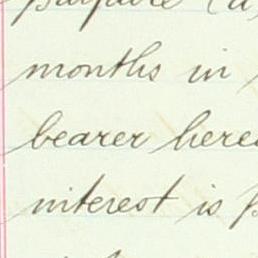 months in
bearer here
interest is